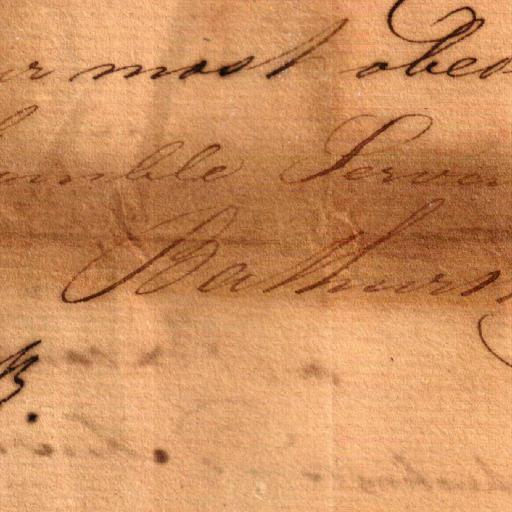 ur most obed
humble Servan
Bathurst
B.